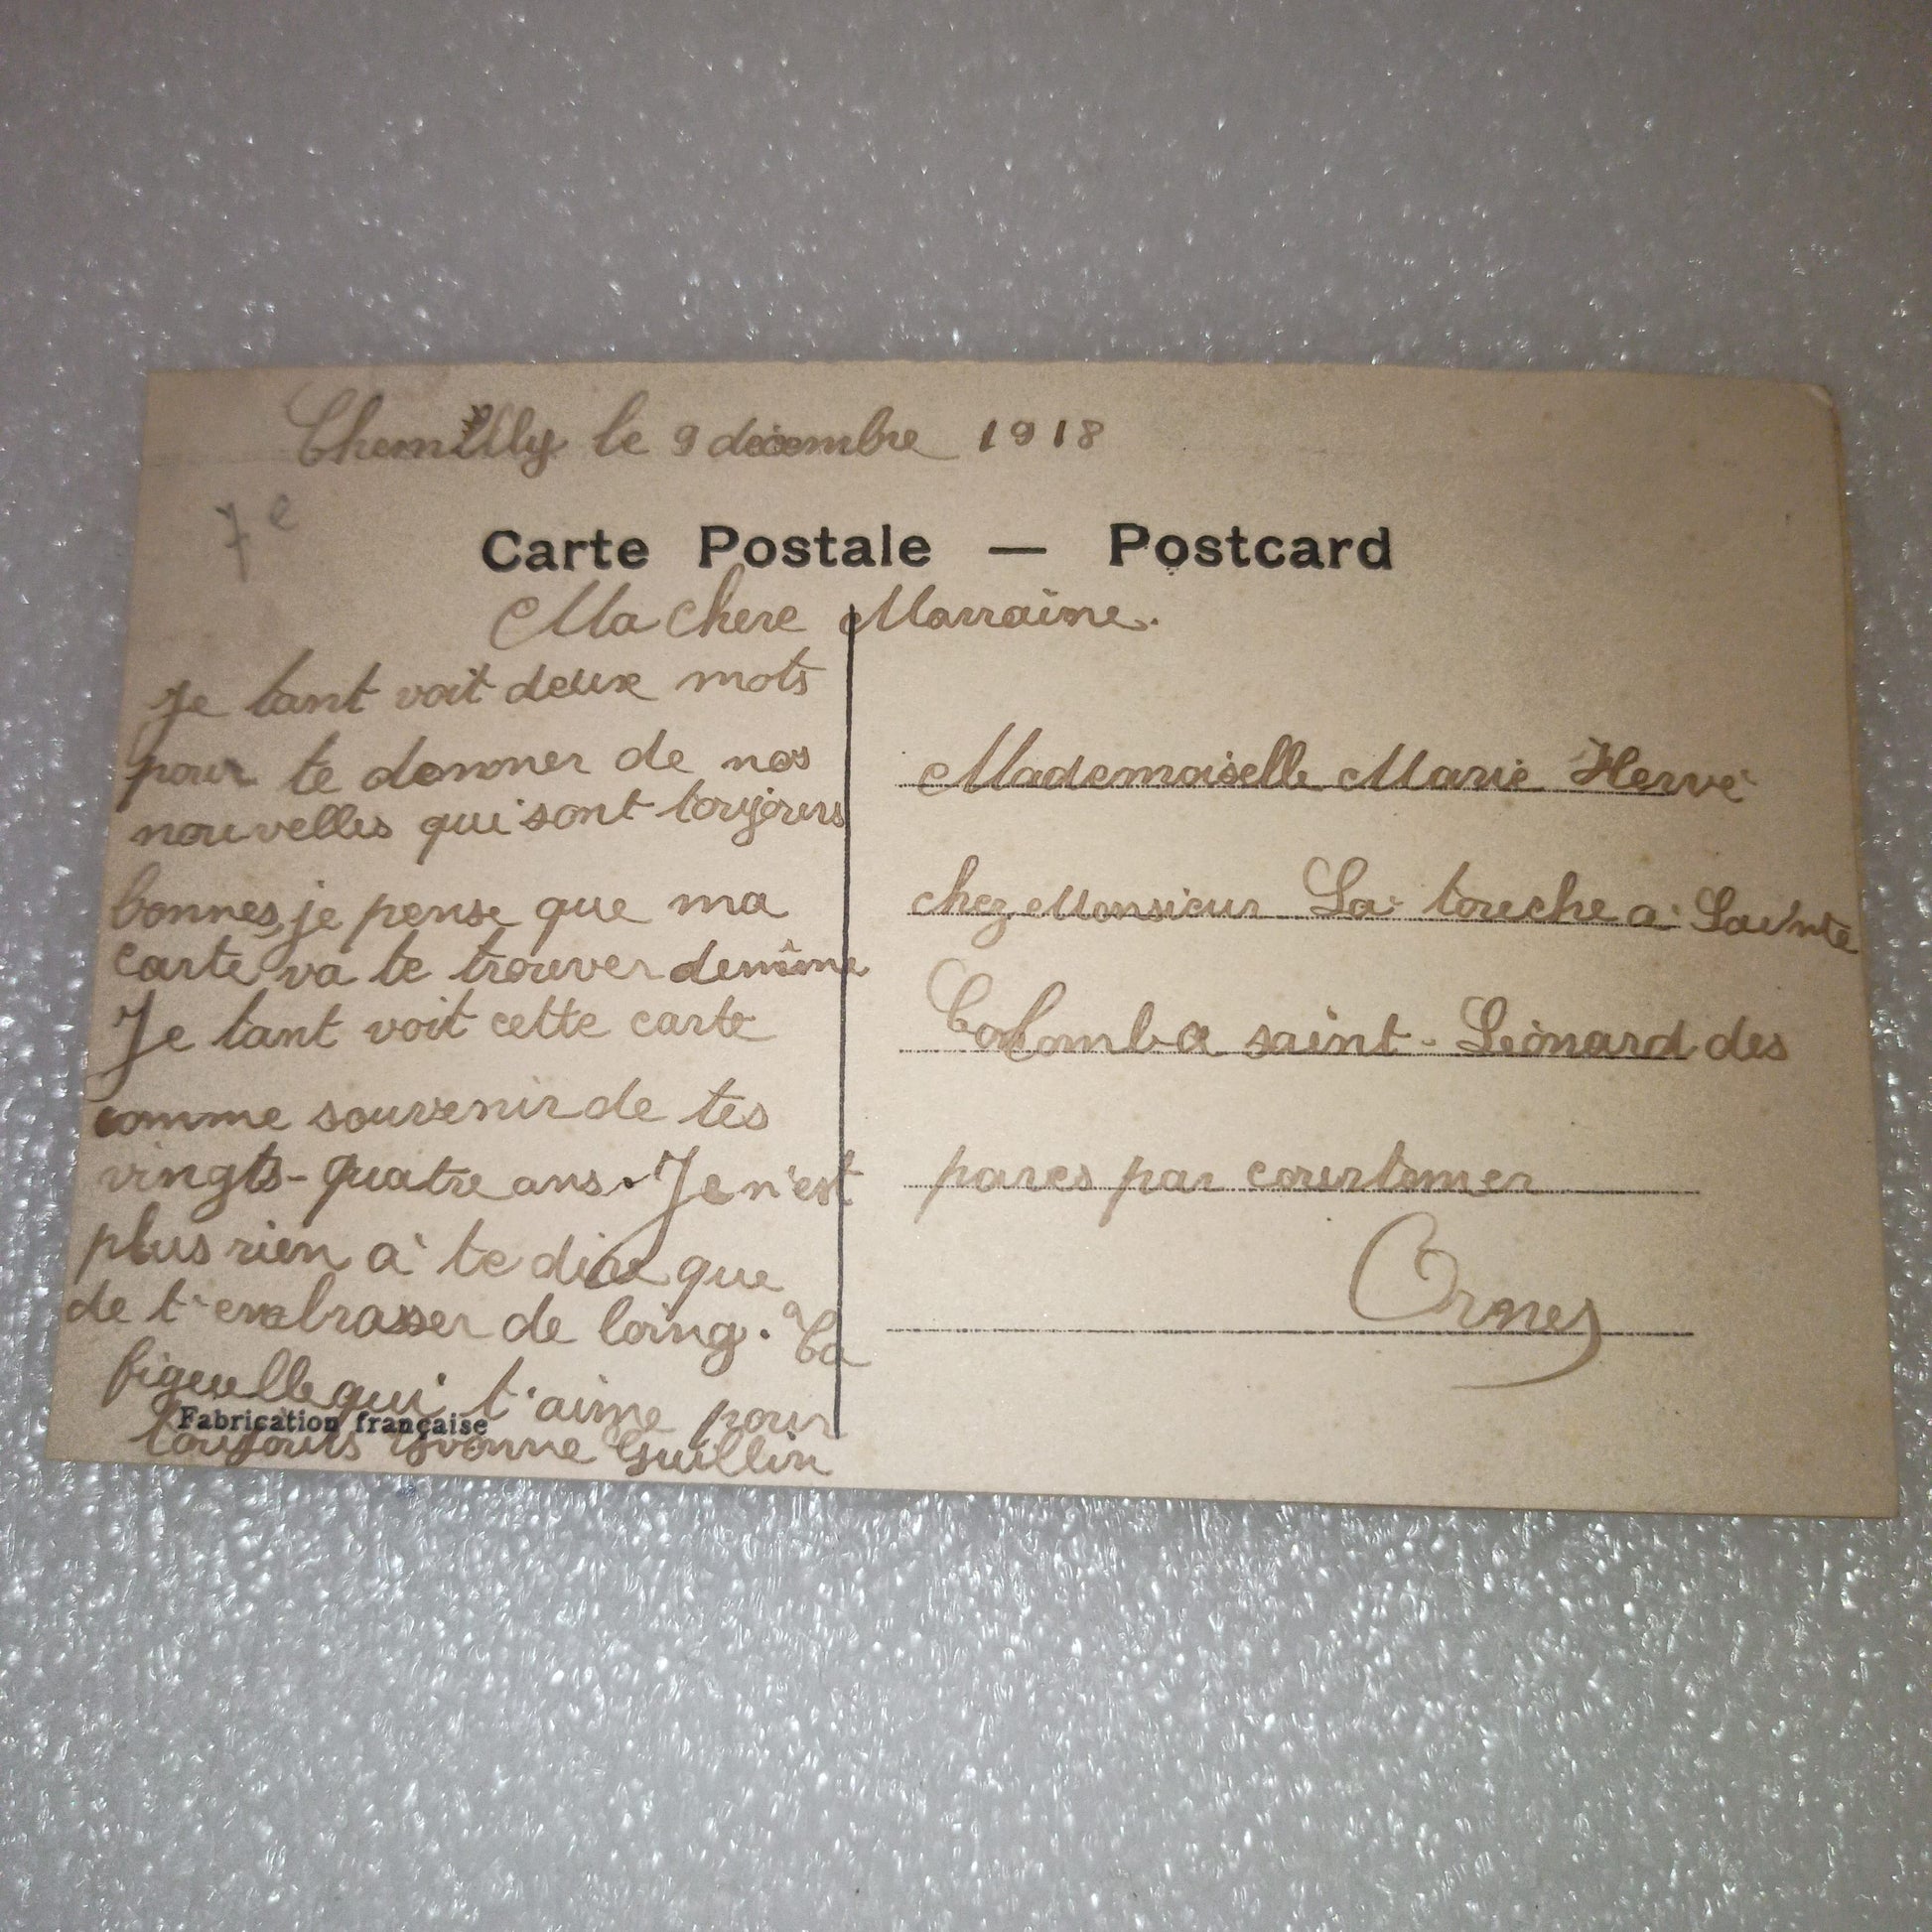 Chemilly le 9 décembre 1918
7e
Carte Postale — Postcard
Ma chere Marraine.
Je tant voit deux mots
pour te donner de nos
nouvelles qui sont toujours
bonnes, je pense que ma
carte va te trouver demême
Je tant voit cette carte
comme souvenir de tes
vingts-quatre ans. Je n'est
plus rien a te dire que
de t'embrasser de loing. Ta
figeulle qui t'aime pour
toujours Yvonne Guillin
Fabrication française
Mademoiselle Marie Hervé
chez Monsieur La touche a Sainte
Colombe saint-Léonard des
parcs par courtomer
Ornes